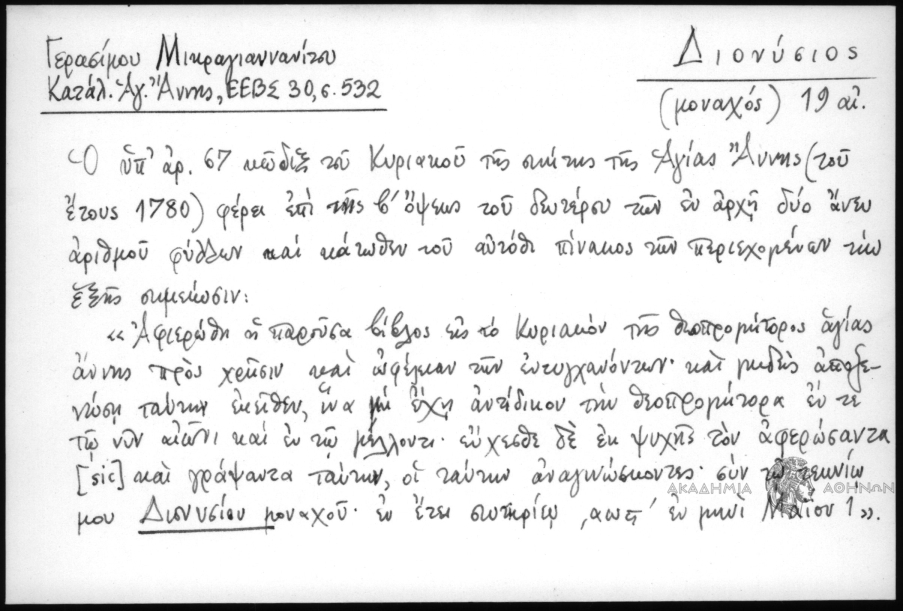 Γερασίμου Μικραγιαννανίτου
Κατάλ. Ἁγ. Ἄννης, ΕΕΒΣ 30, σ. 532
Διονύσιος
(μοναχός) 19 αἰ.
Ὁ ὑπ' ἀρ. 67 κῶδιξ τοῦ Κυριακοῦ τῆς σκήτης τῆς Ἁγίας Ἄννης (τοῦ
ἔτους 1780) φέρει ἐπὶ τῆς β' ὄψεως τοῦ δευτέρου τῶν ἐν ἀρχῇ δύο ἄνευ
ἀριθμοῦ φύλλων καὶ κάτωθεν τοῦ αὐτόθι πίνακος τῶν περιεχομένων τὴν
ἑξῆς σημείωσιν:
«Ἀφιερώθη ἡ παροῦσα βίβλος εἰς τὸ Κυριακὸν τῆς θεοπρομήτορος ἁγίας
ἄννης πρὸς χρῆσιν καὶ ὠφέλειαν τῶν ἐντυγχανόντων· καὶ μηδεὶς ἀποξε-
νώσῃ ταύτην ἐκεῖθεν, ἵνα μὴ ἔχῃ ἀντίδικον τὴν θεοπρομήτορα ἔν τε
τῷ νῦν αἰῶνι καὶ ἐν τῷ μέλλοντι· εὔχεσθε δὲ ἐκ ψυχῆς τὸν ἀφερώσαντα
[sic] καὶ γράψαντα ταύτην, οἱ ταύτην ἀναγινώσκοντες· σὺν τῷ τεκνίῳ
μου Διονυσίου μοναχοῦ· ἐν ἔτει σωτηρίῳ ἐν μηνὶ Μαΐου 1».
ΑΚΑΔΗΜΙΑ ΑΘΗΝΩΝ